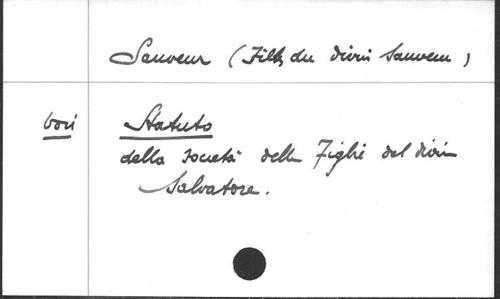 Sauveur (Filles du divin Sauveur)
voir Statuto
della società delle Figlie del divin
Salvatore.